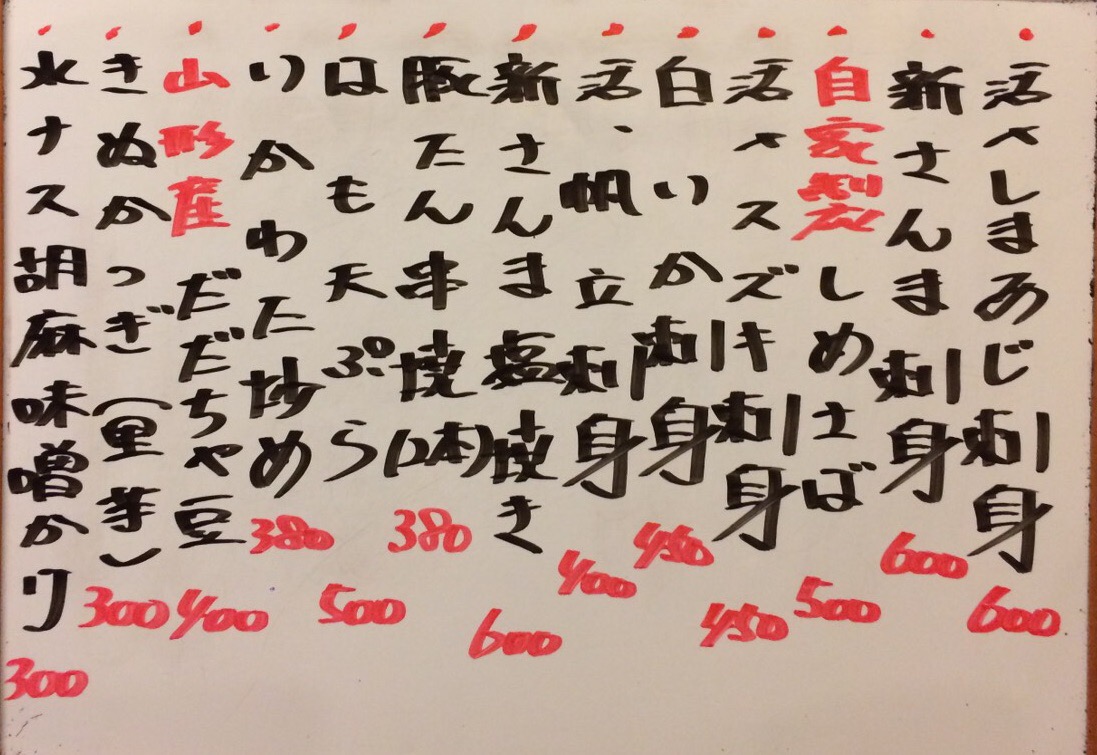 活〆しまあじ刺身 600
新さんま刺身 600
自家製しめさば 500
活〆スズキ刺身 450
白いか刺身 450
活、帆立刺身 400
新さんま塩焼き 600
豚たん串焼(2本) 380
はも天ぷら 500
いかわた炒め 380
山形産だだちゃ豆 400
きぬかつぎ(里芋) 300
水ナス胡麻味噌かけ 300